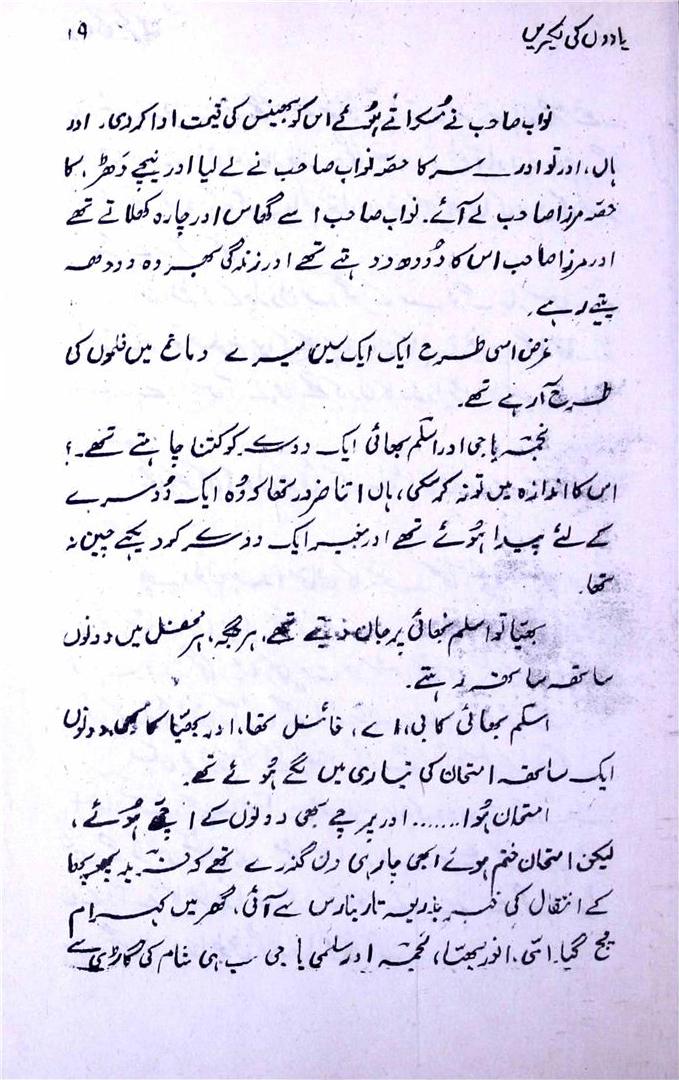 یادوں کی لکیریں ۱۹
نواب صاحب نے مُسکراتے ہُوئے اس کو بھینس کی قیمت ادا کر دی۔ اور
ہاں، اور تو اور سر کا حصّہ نواب صاحب نے لے لیا اور نیچے دَھڑ، کا
حصّہ مرزا صاحب لے آئے۔ نواب صاحب اسے گھاس اور چارہ کھلاتے تھے
اور مرزا صاحب اس کا دُودھ دوہتے تھے اور زندگی بھر وہ دودھ
پیتے رہے۔
غرض اسی طرح ایک ایک سین میرے دماغ میں فلموں کی
طرح آ رہے تھے۔
نجمہ باجی اور اسلم بھائی ایک دوسرے کو کتنا چاہتے تھے۔؟
اس کا اندازہ میں تو نہ کر سکی، ہاں اتنا ضرور تھا کہ وُہ ایک دُوسرے
کے لئے پیدا ہُوئے تھے اور بغیر ایک دوسرے کو دیکھے چین نہ
تھا۔
بھیّا تو اسلم بھائی پر جان دیتے تھے، ہر جگہ، ہر محفل میں دونوں
ساتھ ساتھ رہتے۔
اسلم بھائی کا بی، اے، فائنل تھا، اور بھیّا کا بھی، دونوں
ایک ساتھ امتحان کی تیاری میں لگے ہُوئے تھے۔
امتحان ہُوا....... اور پرچے بھی دونوں کے اچھے ہُوئے،
لیکن امتحان ختم ہوئے ابھی چار ہی دن گذرے تھے کہ فرید پھوپھا
کے انتقال کی خبر بذریعہ تار بنارس سے آئی، گھر میں کہرام
مچ گیا۔ امّی، انور بھیّا، نجمہ اور سلمٰی باجی سب ہی شام کی گاڑی سے